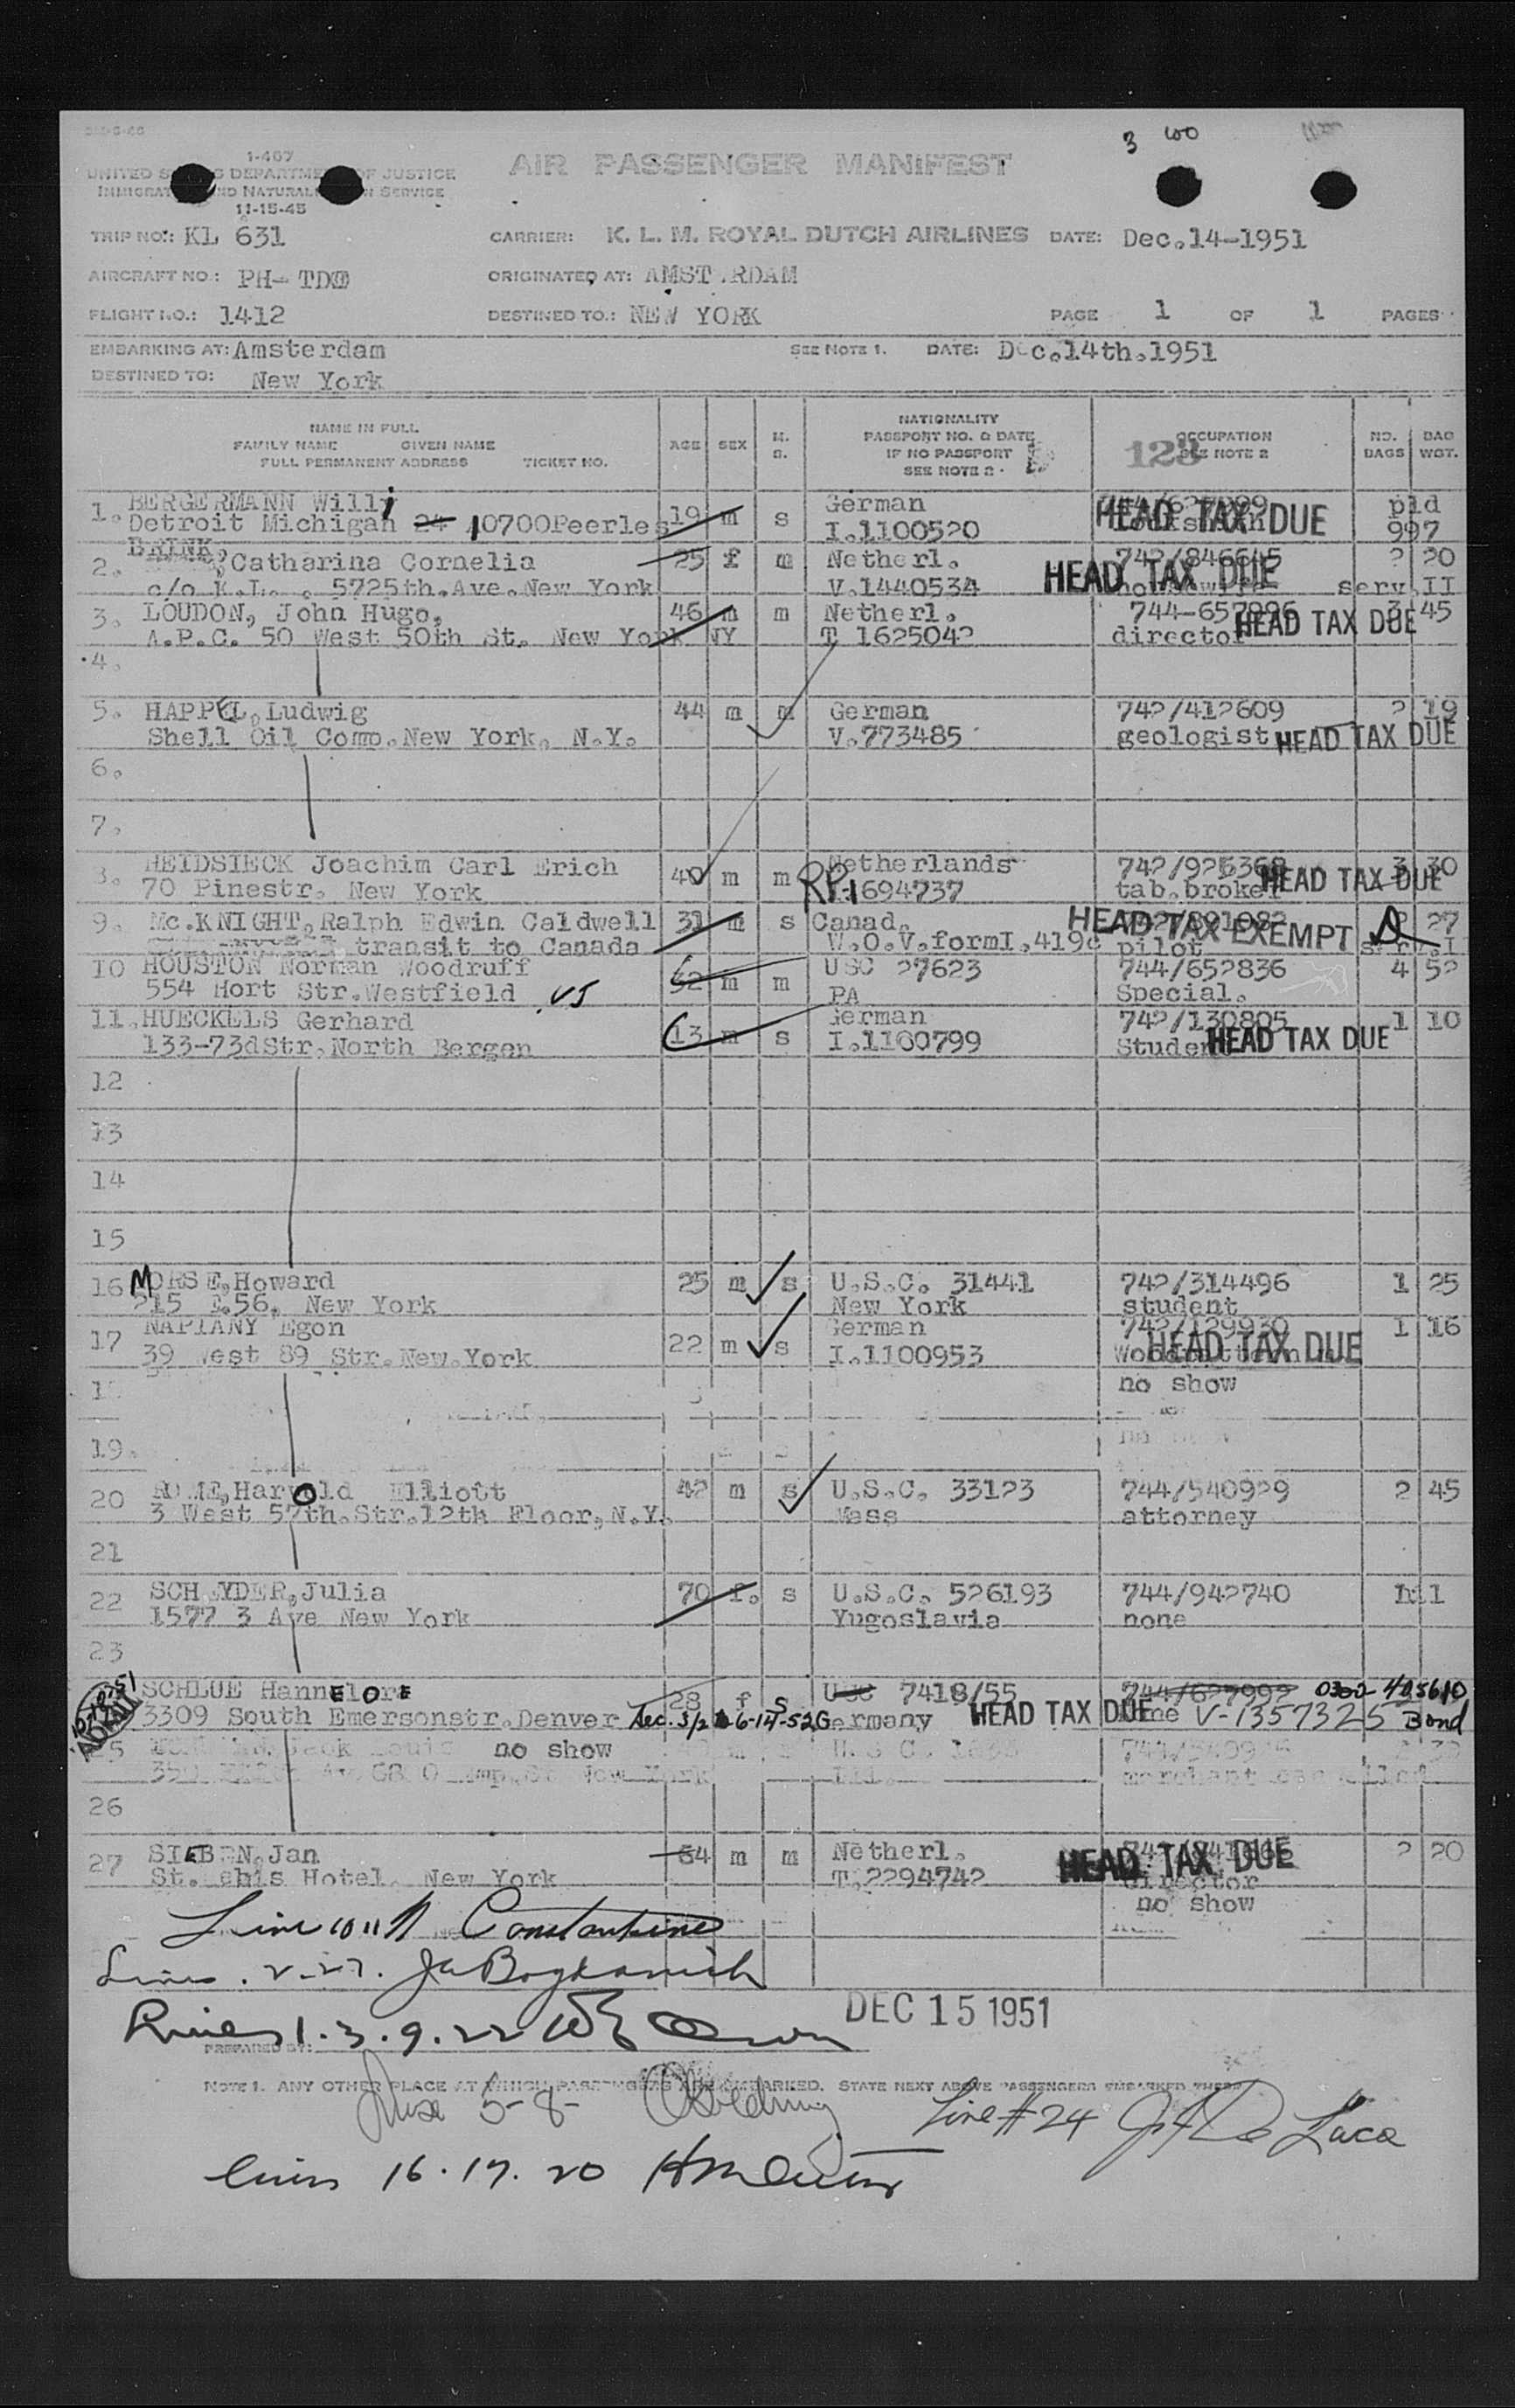 1-467
UNITED S S DEPARTME OF JUSTICE
IMMIGRAT ND NATURAL N SERVICE
11-15-45
AIR PASSENGER MANIFEST
3
TRIP NO.: KL 631 CARRIER: K. L. M. ROYAL DUTCH AIRLINES DATE: Dec.14-1951
AIRCRAFT NO.: PH- ORIGINATED AT: AMST.RDAM
FLIGHT NO.: 1412 DESTINED TO.: NEW YORK PAGE 1 OF 1 PAGES
EMBARKING AT: Amsterdam SEE NOTE 1. DATE: Dec.14th.1951
DESTINED TO: New York
NAME IN FULL
FAMILY NAME GIVEN NAME
FULL PERMANENT ADDRESS TICKET NO.
AGE SEX M. S.
NATIONALITY
PASSPORT NO. & DATE
IF NO PASSPORT
SEE NOTE 2
123
OCCUPATION
SEE NOTE 2
NO. BAGS BAG WGT.
1. BERGERMANN Willi 19 m s German HEAD TAX DUE pld
Detroit Michigan 24 10700Peerles I.1100520 997
2. BRINK, Catharina Cornelia 25 f m Netherl. 742/846645 2 20
c/o K.L. . 5725th.Ave.New York V.1440534 HEAD TAX DUE housewife serv.II
3. LOUDON, John Hugo, 46 m m Netherl. 744-657896 3 45
A.P.C. 50 West 50th St. New York NY T 1625042 director HEAD TAX DUE
4.
5. HAPPEL, Ludwig 44 m m German 742/412609 2 19
Shell Oil Comp.New York. N.Y. V.773485 geologist HEAD TAX DUE
6.
7.
8. HEIDSIECK Joachim Carl Erich 40 m m Netherlands 742/926368 3 30
70 Pinestr. New York RP1 694737 tab.broker HEAD TAX DUE
9. Mc.KNIGHT,Ralph Edwin Caldwell 31 m s Canad. HEAD TAX EXEMPT 27
transit to Canada W.O.V.formI.419c pilot
10 HOUSTON Norman Woodruff 52 m m USC 27623 744/652836 4 52
554 Hort Str.Westfield PA Special.
11. HUECKELS Gerhard 13 m s German 742/130805 1 10
133-73dStr.North Bergen I.1100799 Student HEAD TAX DUE
12
13
14
15
16 MORSE,Howard 25 m s U.S.C. 31441 742/314496 1 25
215 E.56. New York New York student
17 NAPIANY Egon 22 m s German 742/129930 1 16
39 West 89 Str.New.York I.1100953 HEAD TAX DUE
no show
19.
20 Harold Elliott 42 m s U.S.C. 33123 744/540929 2 45
3 West 57th.Str.12th Floor,N.Y. Mass attorney
21
22 SCH YDER,Julia 70 f. s U.S.C. 526193 744/942740 nil
1577 3 Ave New York Yugoslavia none
23
SCHLUE HannElOrE 28 f s USC 7418/55 744/627992 0300-405610
3309 South Emersonstr.Denver Sec. 3/2 6-14-52 Germany HEAD TAX DUE V-1357325 Bond
no show
26
27 SIEBEN,Jan 64 m m Netherl. HEAD TAX DUE 2 20
St. Hotel. New York T.2294742 director
no show
Line 10 11 Constantine
Lines . 2-27.
Lines 1. 3. 9. 22
DEC 15 1951
PREPARED BY:
NOTE 1. ANY OTHER PLACE AT WHICH PASSENGERS ARE EMBARKED. STATE NEXT ABOVE PASSENGERS EMBARKED THERE
Line 5-8-
Line # 24 De Luca
lines 16. 17. 20